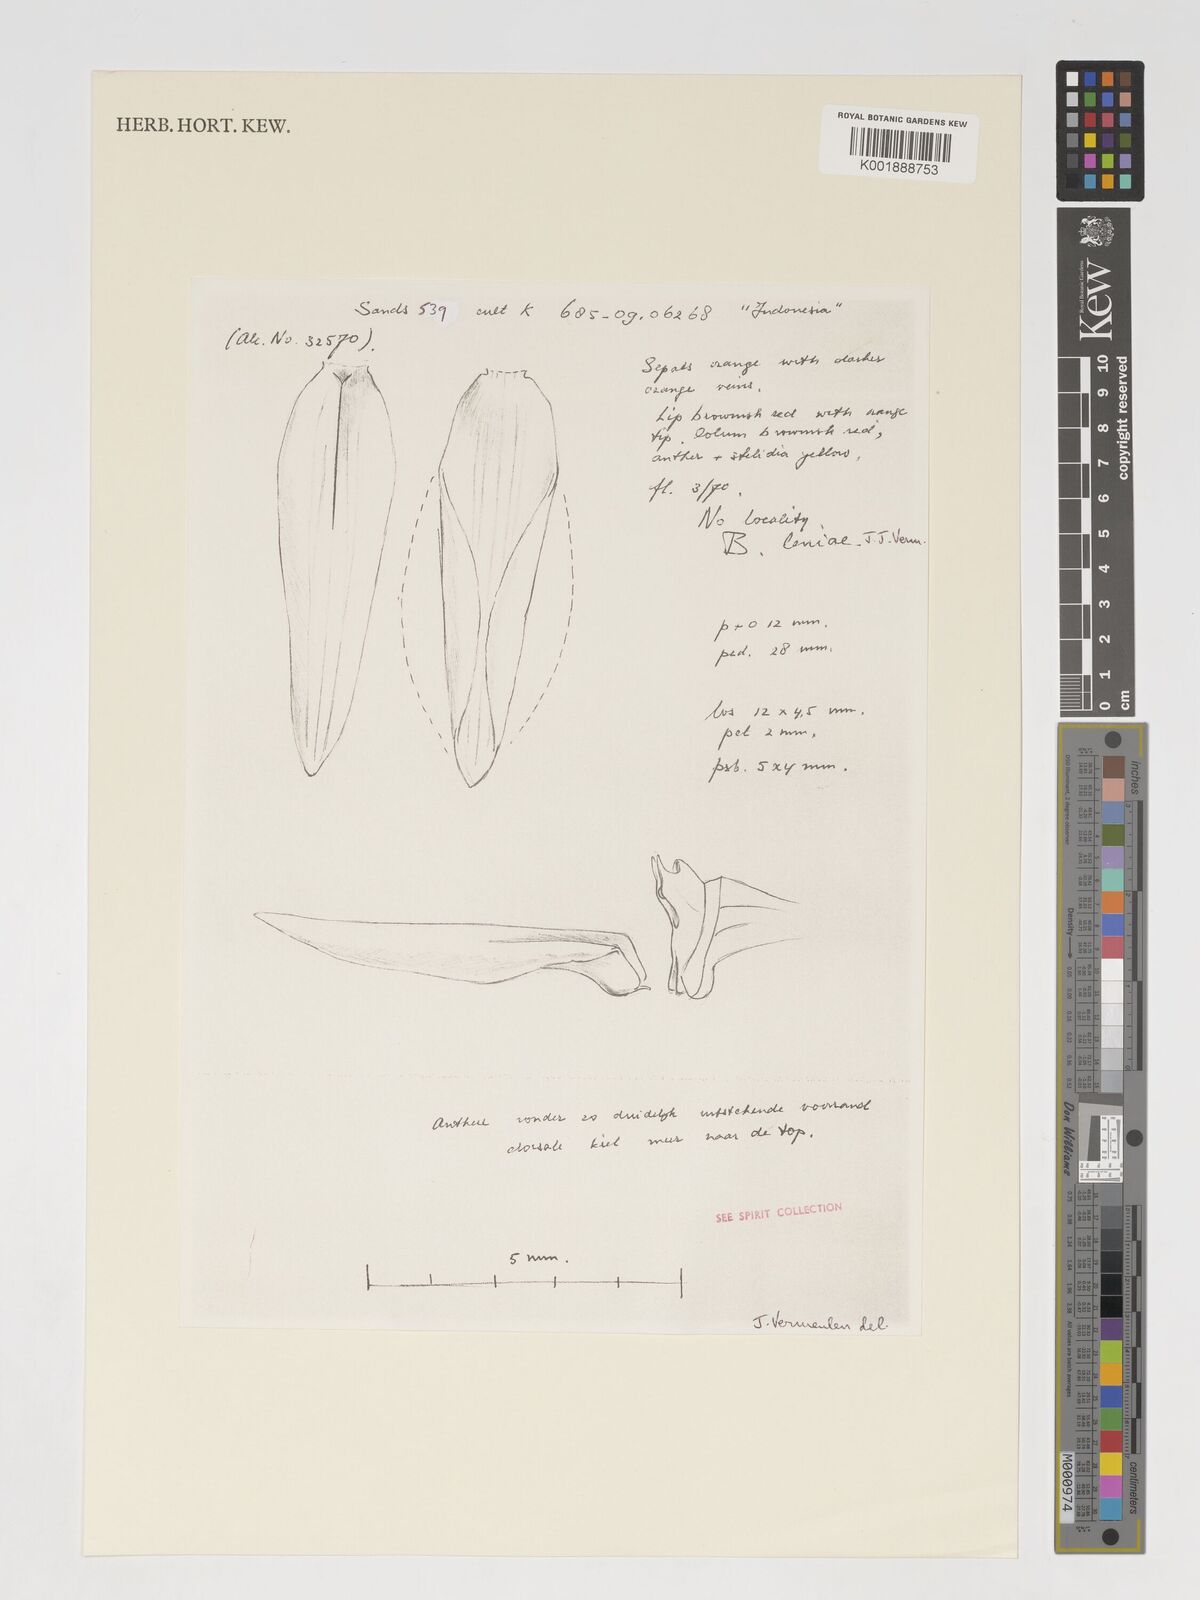 HERB. HORT. KEW.
ROYAL BOTANIC GARDENS KEW
K001888753
Sands 539 cult K 685-09.06268 "Indonesia"
(Alc. No. 32570).
Sepals orange with darker
orange veins.
Lip brownish red with orange
tip. Colum brownish red,
anther + stelidia yellow.
fl. 3/70.
No locality
B. leniae J.J. Verm.
p+o 12 mm.
ped. 28 mm.
lvs 12 x 4,5 mm.
pet 2 mm.
psb. 5x4 mm.
Anthere zonder zo duidelijk uitstekende voorrand
dorsale kiel meer naar de top.
SEE SPIRIT COLLECTION
5 mm.
J. Vermeulen del.
Royal Botanic Gardens
Kew
copyright reserved
0 1 2 3 4 5 6 7 8 9 10
cm
inches
Density
Don Williams
centimeters
M000974